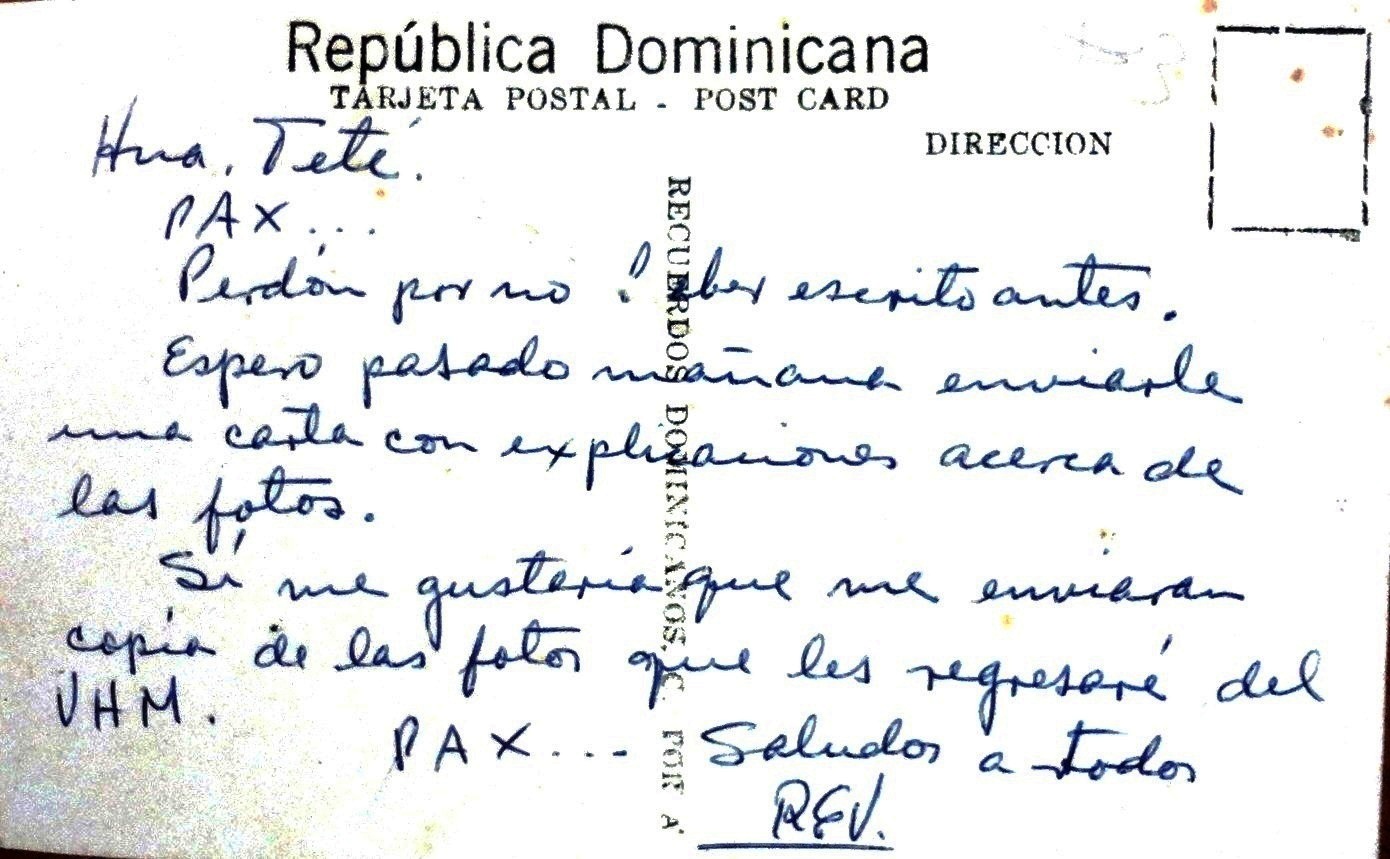 República Dominicana
TARJETA POSTAL - POST CARD
DIRECCION
RECUERDOS DOMINICANOS, C. POR A
Hna. Teté.
PAX...
Perdón por no haber escrito antes.
Espero pasado mañana enviarle
una carta con explicaciones acerca de
las fotos.
Sí me gustaría que me enviaran
copia de las fotos que les regresaré del
VHM.
PAX... Saludos a todos
REV.